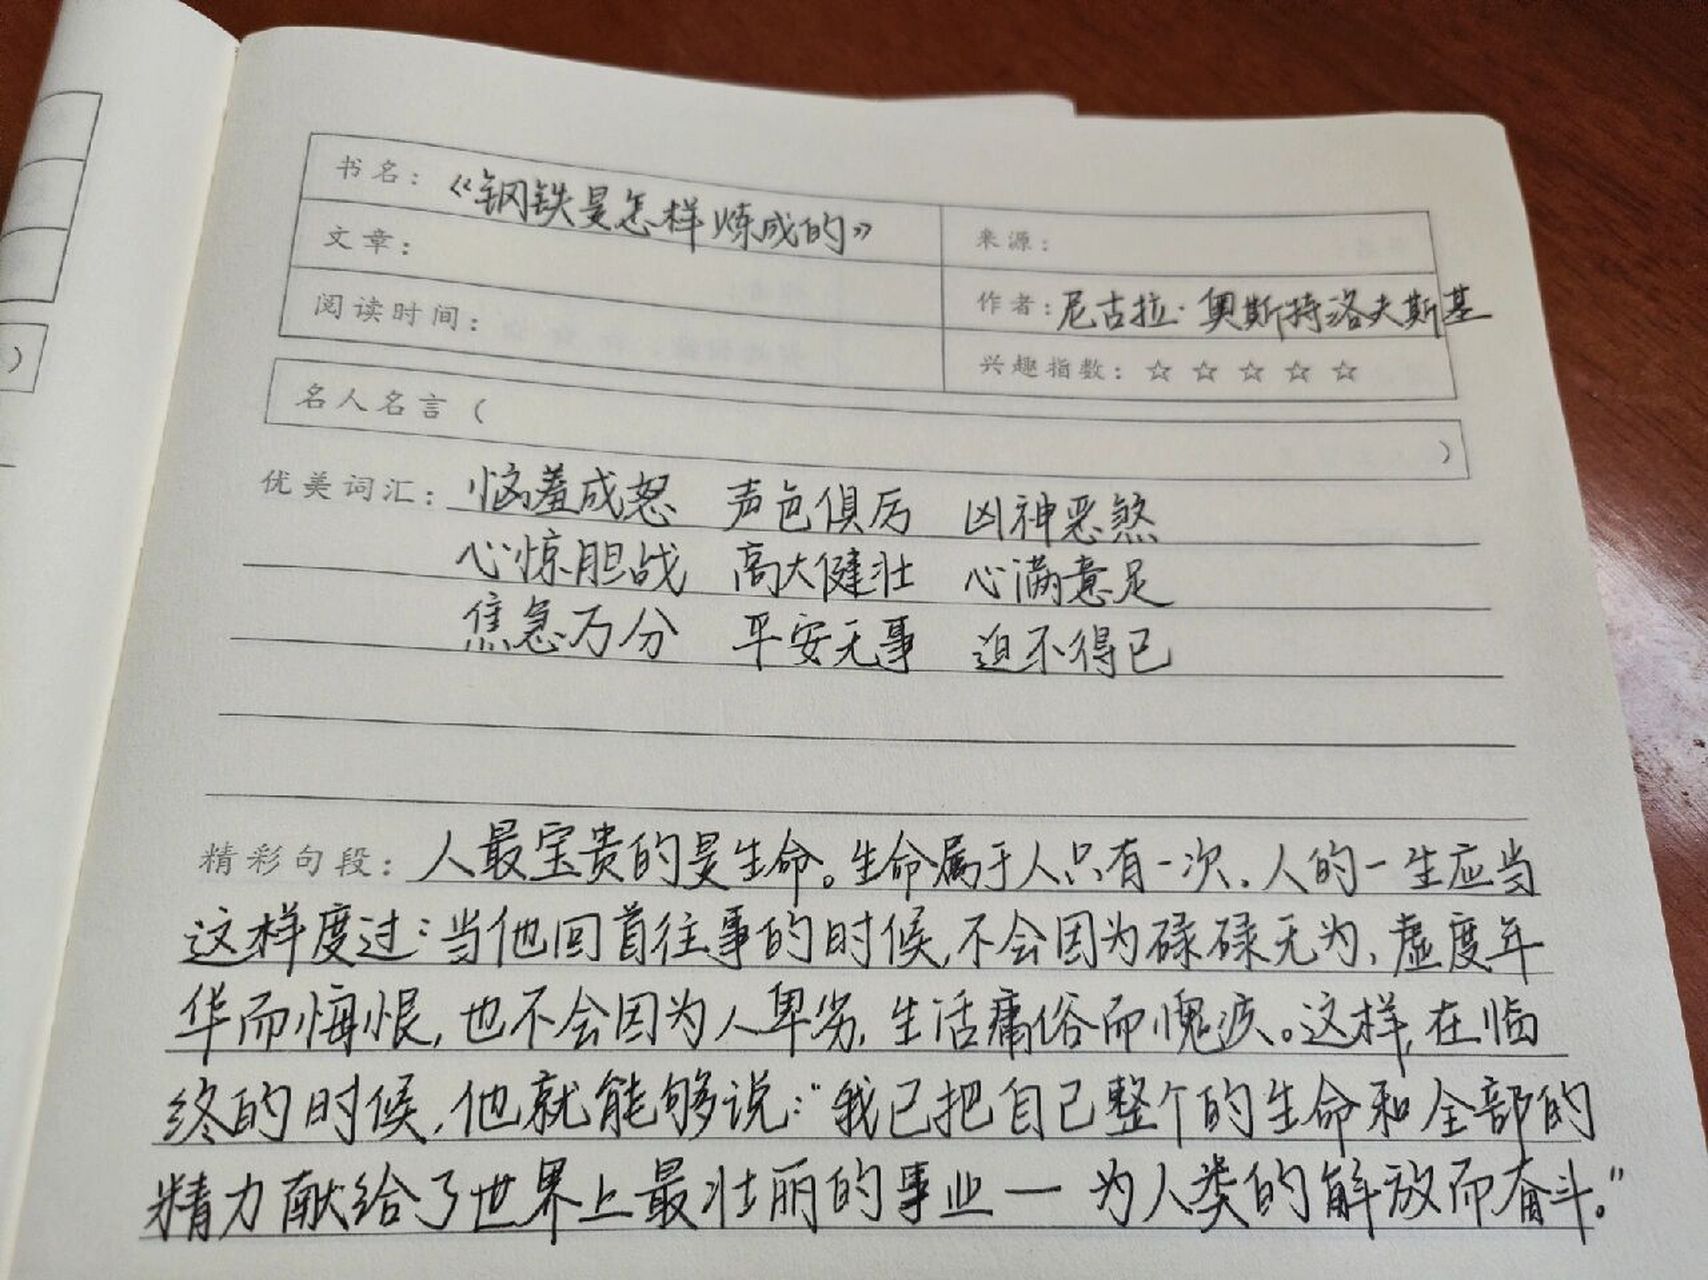 书名：《钢铁是怎样炼成的》
文章： 来源：
阅读时间： 作者：尼古拉·奥斯特洛夫斯基
兴趣指数：☆ ☆ ☆ ☆ ☆
名人名言（ ）
优美词汇：恼羞成怒 声色俱厉 凶神恶煞
心惊胆战 高大健壮 心满意足
焦急万分 平安无事 迫不得已
精彩句段：人最宝贵的是生命。生命属于人只有一次。人的一生应当
这样度过：当他回首往事的时候，不会因为碌碌无为、虚度年
华而悔恨，也不会因为人卑劣，生活庸俗而愧疚。这样，在临
终的时候，他就能够说：“我已把自己整个的生命和全部的
精力献给了世界上最壮丽的事业—为人类的解放而奋斗。”
）